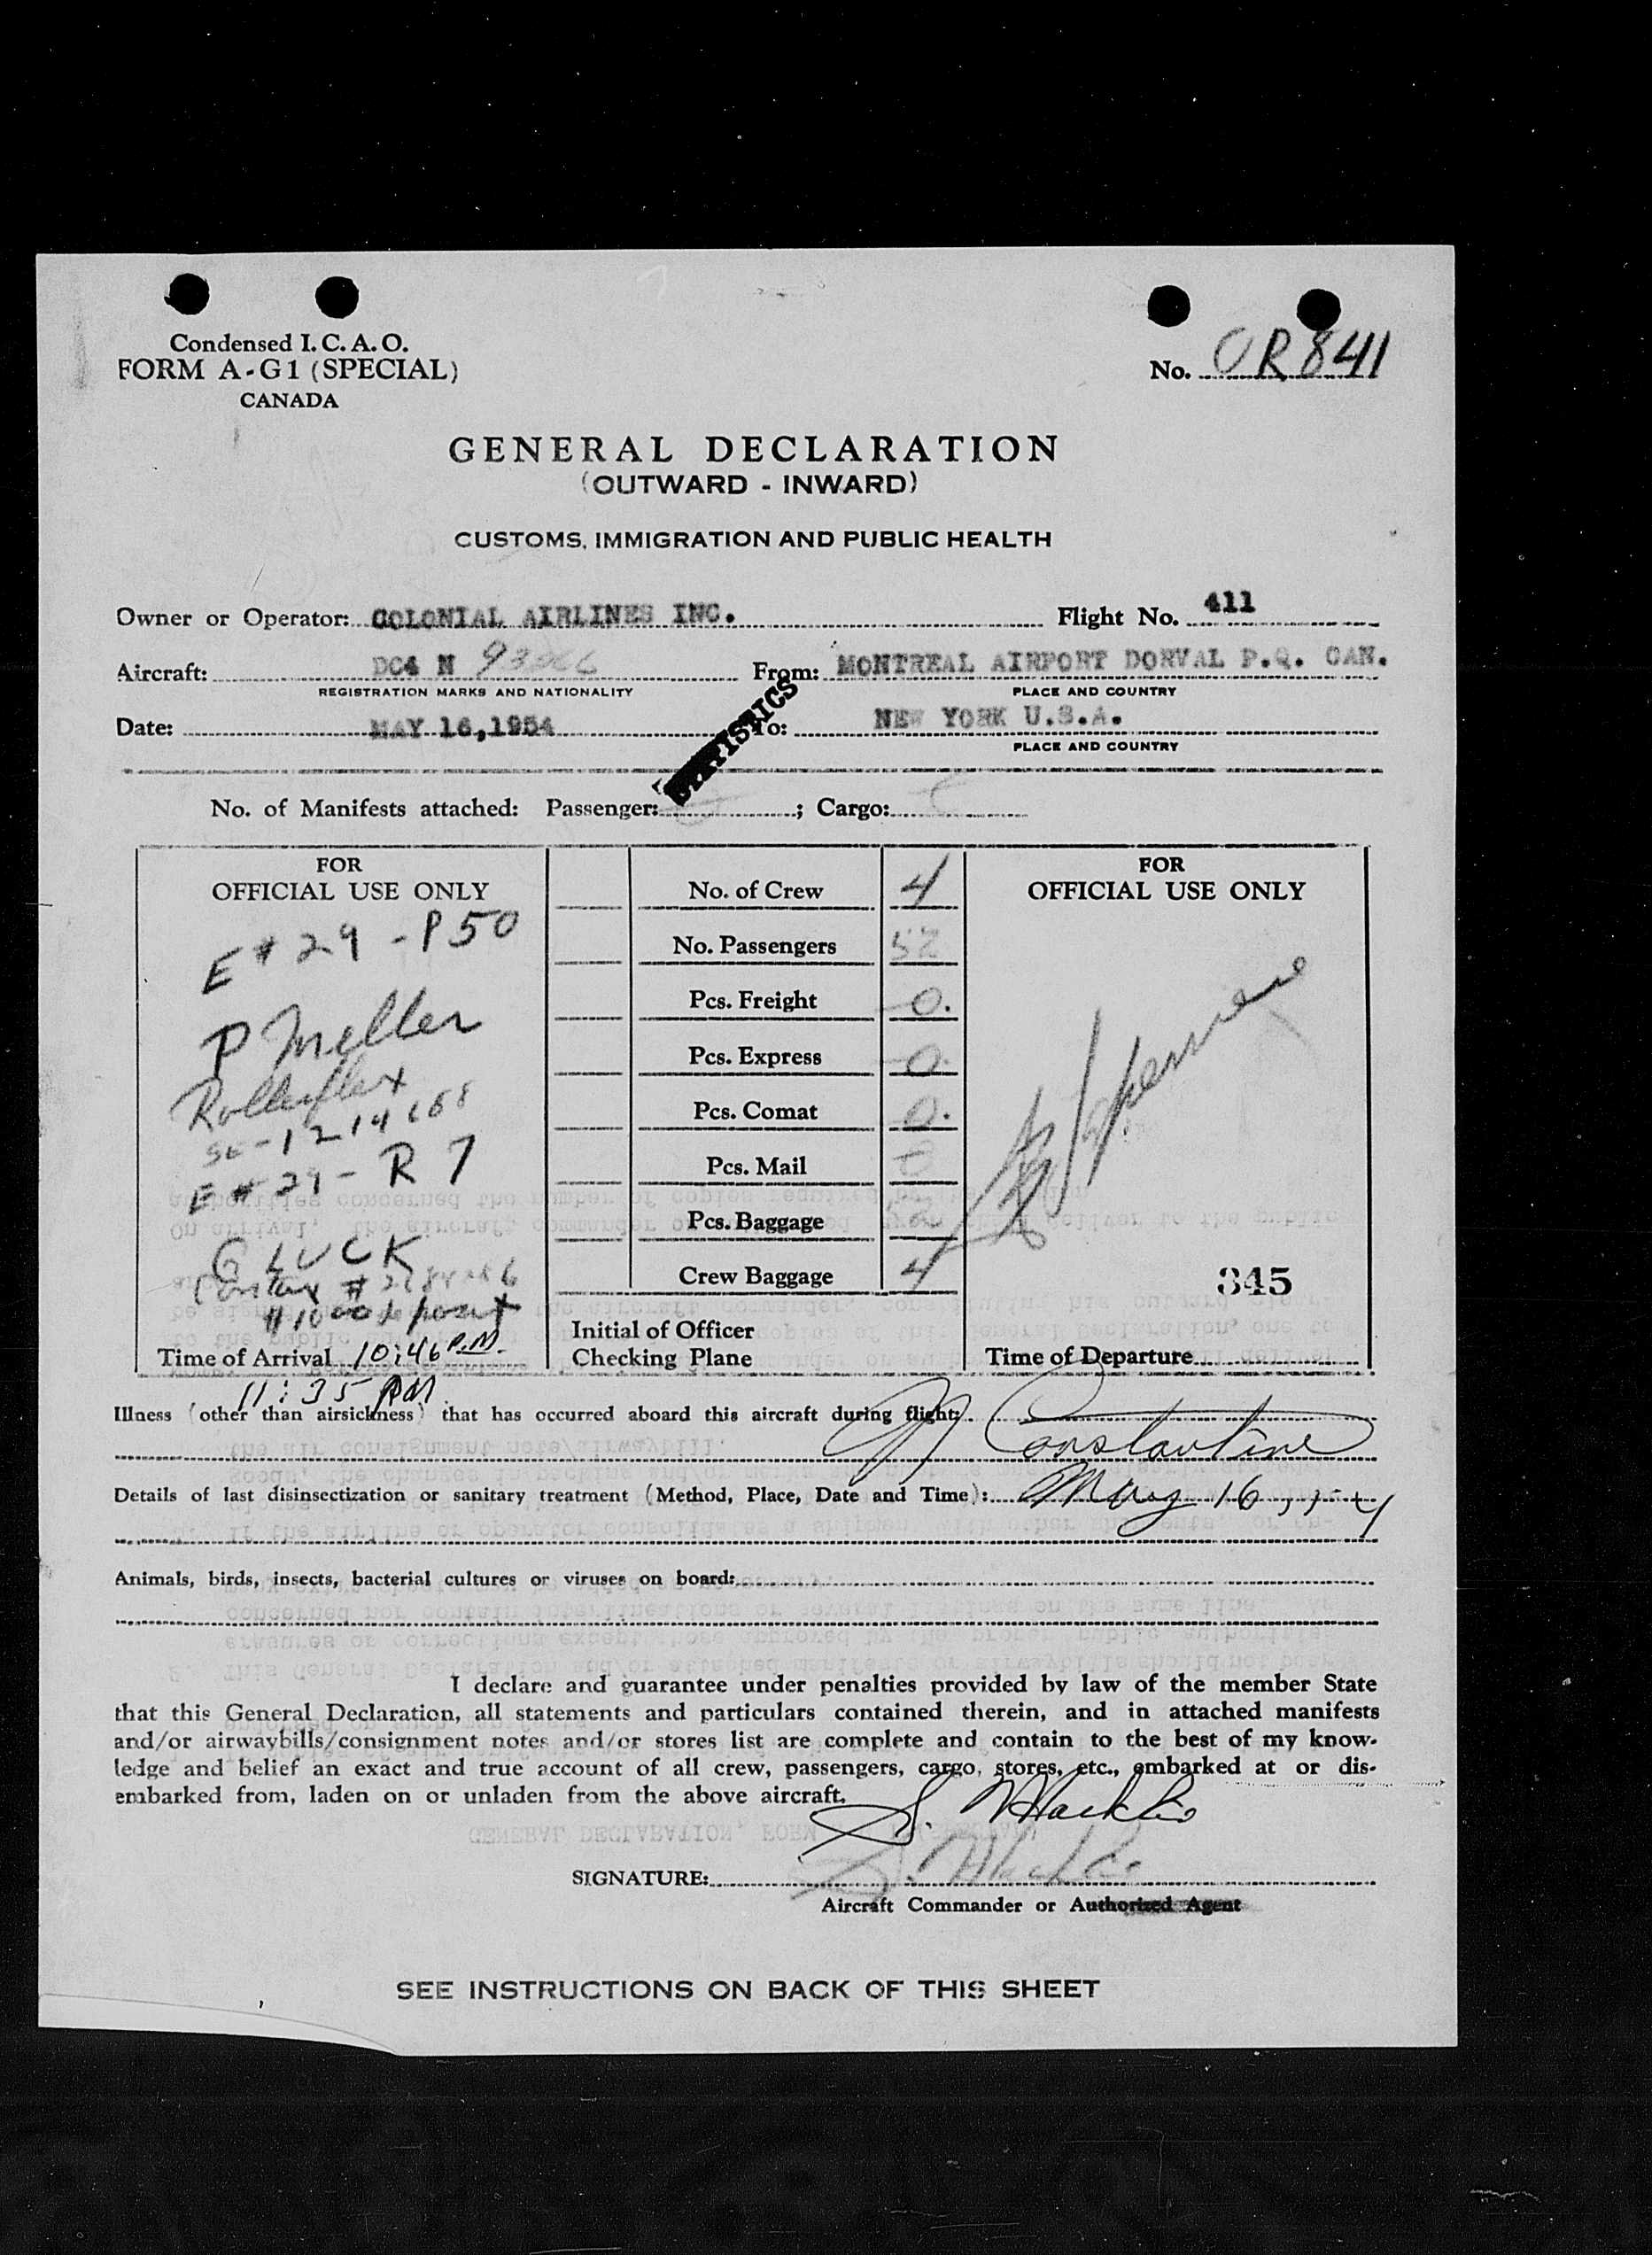 Condensed I. C. A. O.
FORM A-G1 (SPECIAL)
CANADA
No. OR841
GENERAL DECLARATION
(OUTWARD - INWARD)
CUSTOMS, IMMIGRATION AND PUBLIC HEALTH
Owner or Operator: COLONIAL AIRLINES INC. Flight No. 411
Aircraft: DC4 N From: MONTREAL AIRPORT DORVAL P.Q. CAN.
REGISTRATION MARKS AND NATIONALITY PLACE AND COUNTRY
Date: MAY 16,1954 To: NEW YORK U.S.A.
PLACE AND COUNTRY
STATISTICS
No. of Manifests attached: Passenger: ; Cargo:
FOR
OFFICIAL USE ONLY
E # 29 - P50
P Meller
Rolleiflex
E # 29 - R 7
G LUCK
Contax #
Time of Arrival 10:46 P.M.
11:35 PM
No. of Crew 4
No. Passengers 52
Pcs. Freight 0.
Pcs. Express 0.
Pcs. Comat 0.
Pcs. Mail 0
Pcs. Baggage
Crew Baggage 4
Initial of Officer
Checking Plane
FOR
OFFICIAL USE ONLY
345
Time of Departure
Illness (other than airsickness) that has occurred aboard this aircraft during flight:
Constantine
Details of last disinsectization or sanitary treatment (Method, Place, Date and Time): May 16
Animals, birds, insects, bacterial cultures or viruses on board:
I declare and guarantee under penalties provided by law of the member State
that this General Declaration, all statements and particulars contained therein, and in attached manifests
and/or airwaybills/consignment notes and/or stores list are complete and contain to the best of my know-
ledge and belief an exact and true account of all crew, passengers, cargo, stores, etc., embarked at or dis-
embarked from, laden on or unladen from the above aircraft.
SIGNATURE:
Aircraft Commander or Authorized Agent
SEE INSTRUCTIONS ON BACK OF THIS SHEET